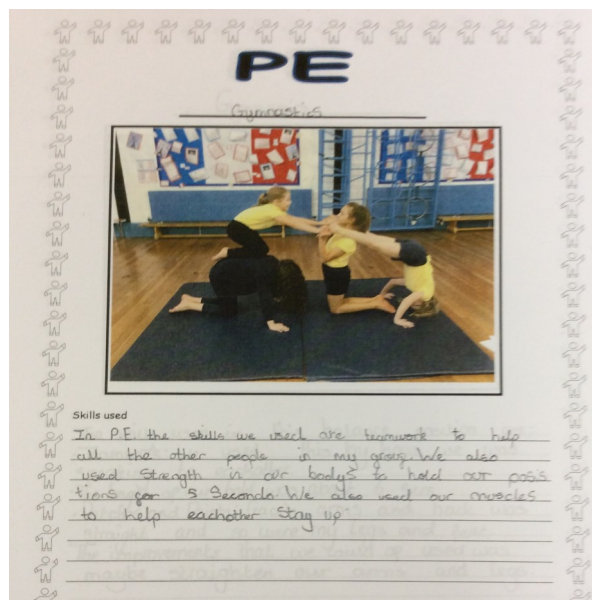 PE
Gymnastics
Skills used
In P.E the skills we used are teamwork to help
all the other people in my group. We also
used Strength in our bodys to hold our posis
tions for 5 Seconds. We also used our muscles
to help eachother Stay up